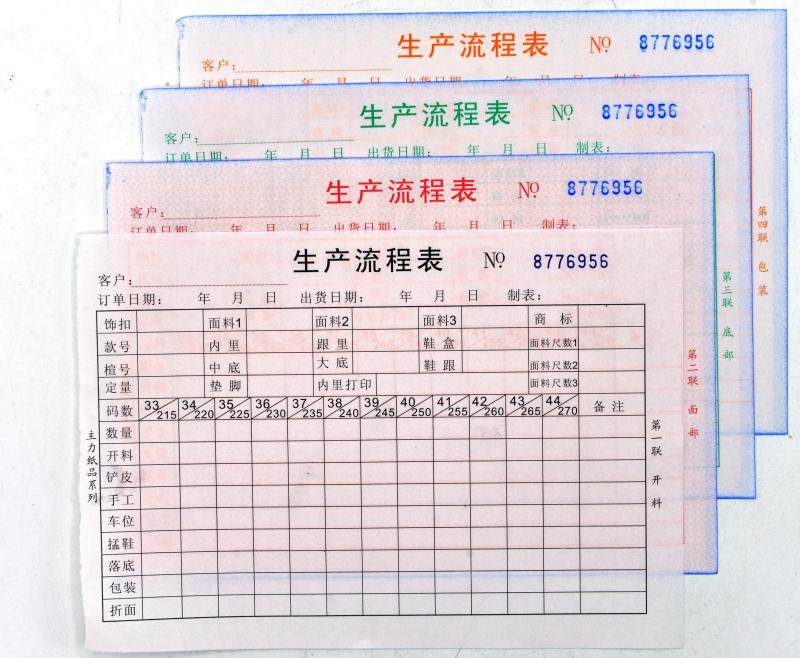 生产流程表 No 8776956
客户：
订单日期： 年 月 日 出货日期： 年 月 日 制表：
第四联 包装
生产流程表 No 8776956
客户：
订单日期： 年 月 日 出货日期： 年 月 日 制表：
第三联 底部
生产流程表 No 8776956
客户：
订单日期： 年 月 日 出货日期： 年 月 日 制表：
第二联 面部
生产流程表 No 8776956
客户：
订单日期： 年 月 日 出货日期： 年 月 日 制表：
饰扣 面料1 面料2 面料3 商标
款号 内里 跟里 鞋盒 面料尺数1
楦号 中底 大底 鞋跟 面料尺数2
定量 垫脚 内里打印 面料尺数3
码数 33/215 34/220 35/225 36/230 37/235 38/240 39/245 40/250 41/255 42/260 43/265 44/270 备注
数量
开料
铲皮
手工
车位
掹鞋
落底
包装
折面
主力纸品系列
第一联 开料